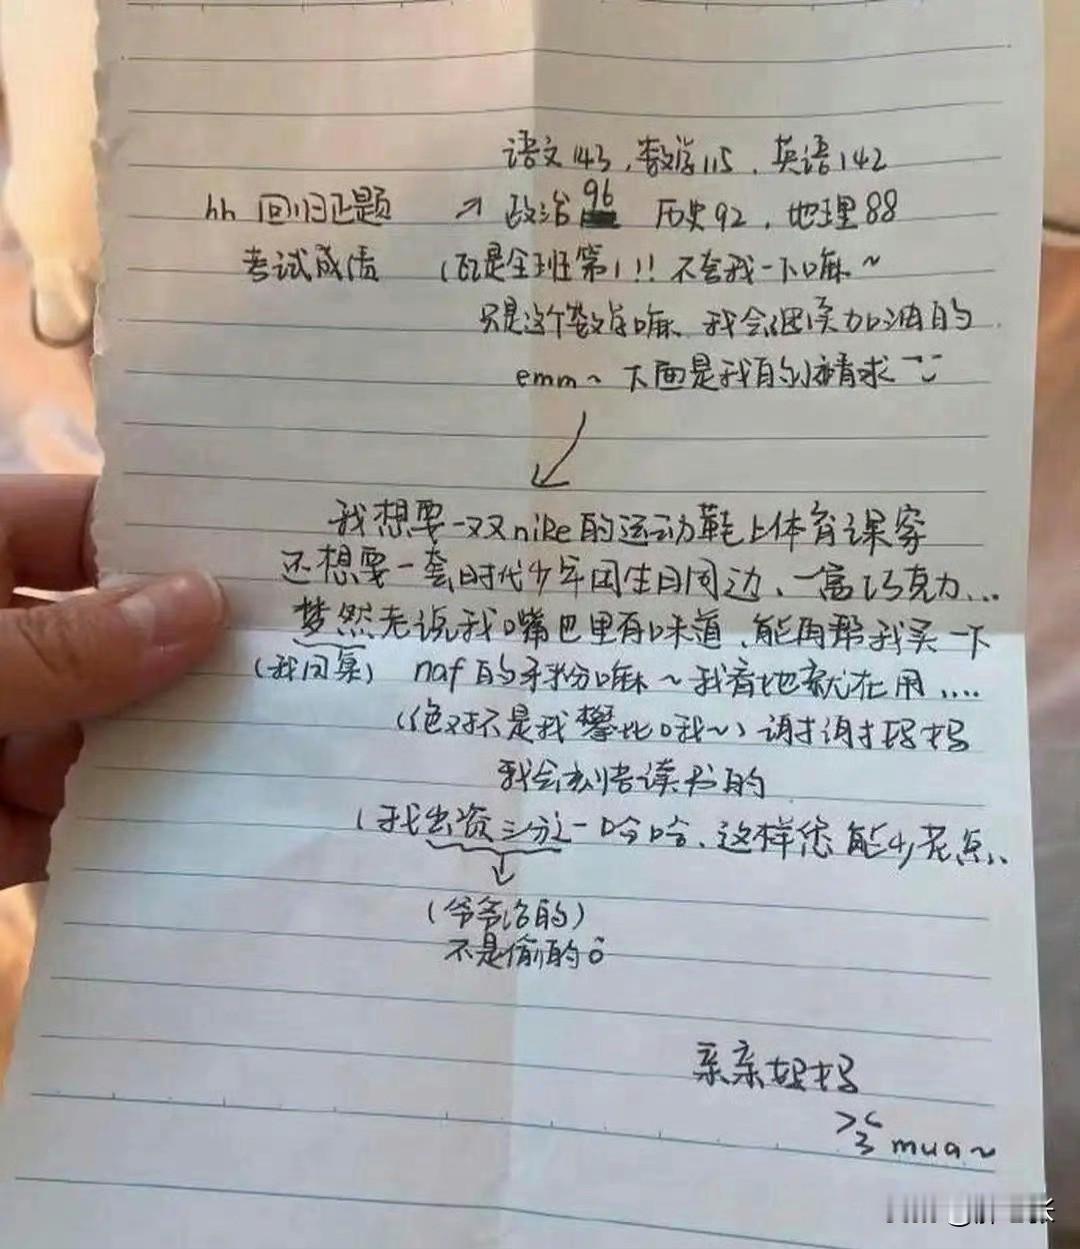 语文143，数学115，英语142
hh 回归正题 ↗ 政治96 历史92，地理88
考试成绩 (瓦是全班第1!! 不夸我一下嘛~
只是这个数学嘛、我会继续加油的
emm~ 下面是我的小请求
我想要一双nike的运动鞋上体育课穿
还想要一套时代少年团生日周边、一盒巧克力...
梦然老说我嘴巴里有味道，能再帮我买一下
(我同桌) naf的牙粉嘛~我看他就在用....
(绝对不是我攀比哦~) 谢谢妈妈
我会刻苦读书的
(我出资三分之一哈哈、这样您能少花点..
(爷爷给的)
不是偷的ö
亲亲妈妈
>3< mua~